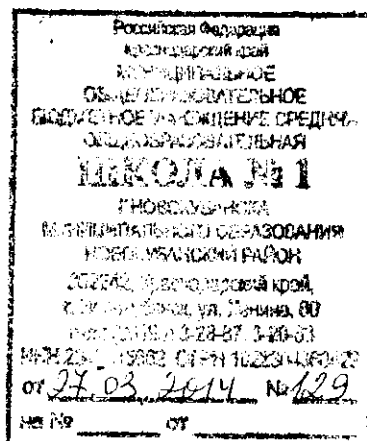 Российская Федерация
Краснодарский край
МУНИЦИПАЛЬНОЕ
ОБЩЕОБРАЗОВАТЕЛЬНОЕ
БЮДЖЕТНОЕ УЧРЕЖДЕНИЕ СРЕДНЯЯ
ОБЩЕОБРАЗОВАТЕЛЬНАЯ
ШКОЛА № 1
Г.НОВОКУБАНСКА
МУНИЦИПАЛЬНОГО ОБРАЗОВАНИЯ
НОВОКУБАНСКИЙ РАЙОН
Краснодарский край,
г. Новокубанск, ул. Ленина,
3-28-87,
ИНН ОГРН
от 27.03.2014 № 129
на № от